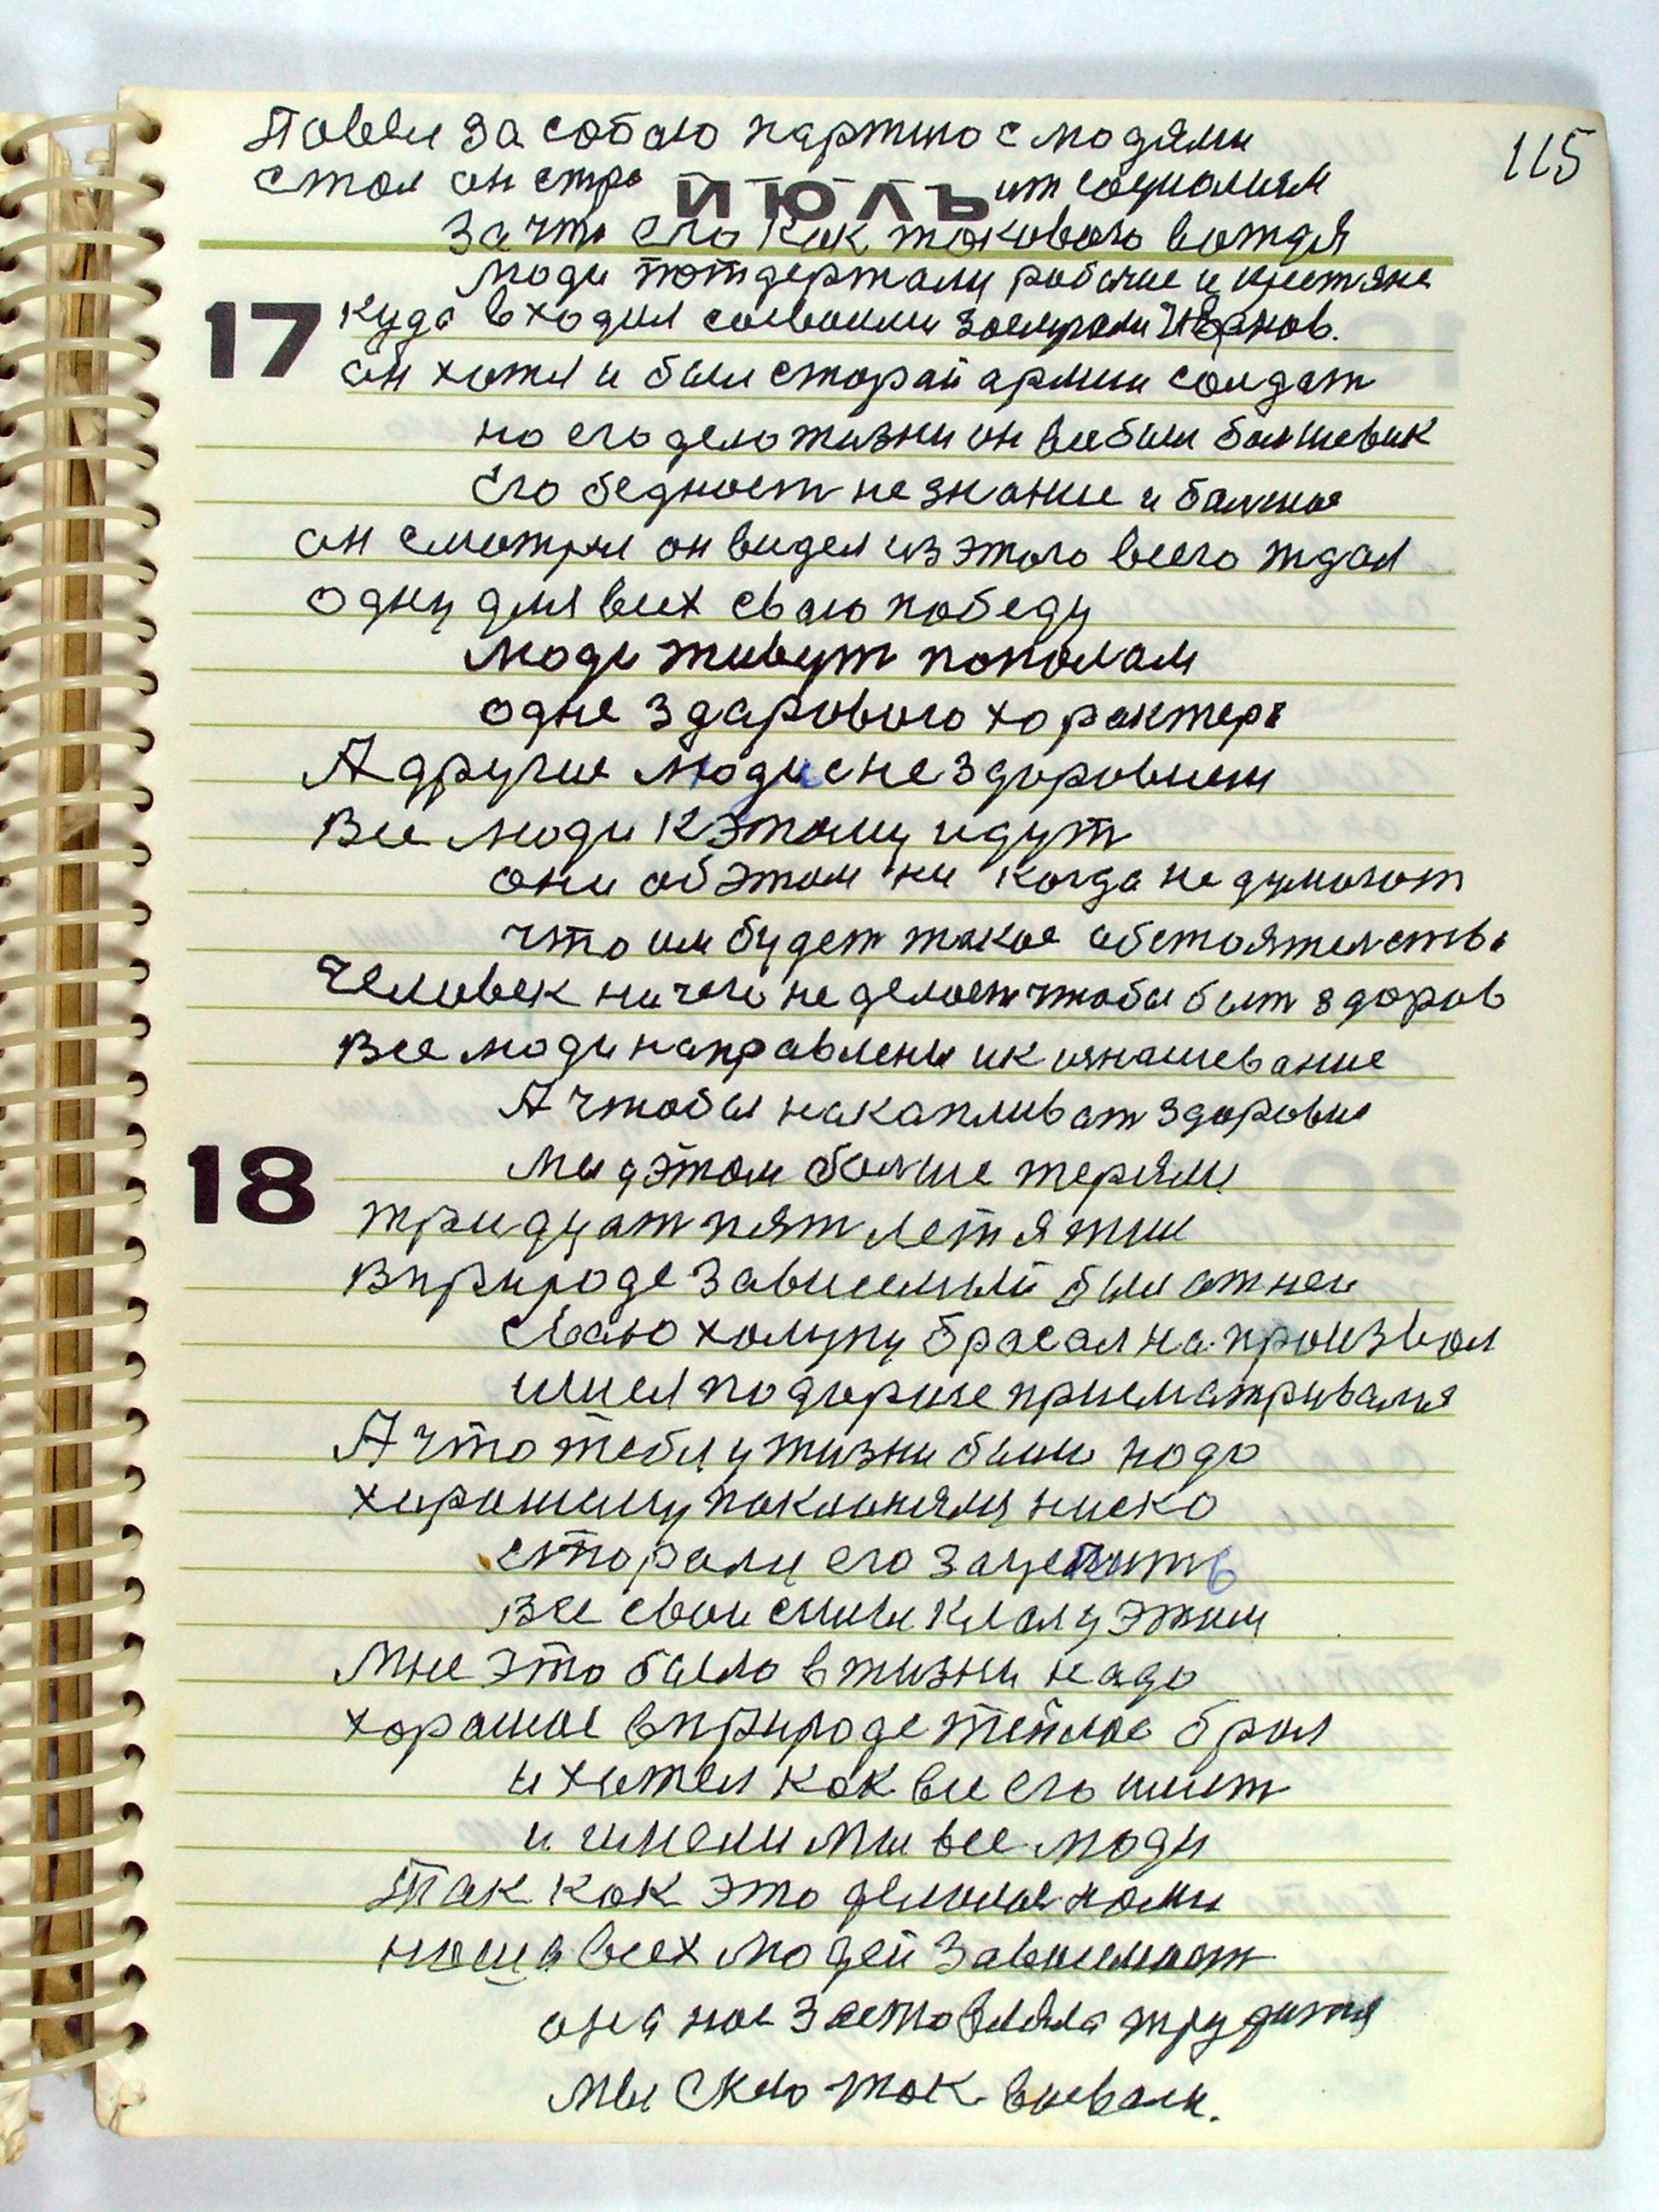 115
Повел за собою партию с людями
стал он стро ит социализм
ИЮЛЬ
За что его как такового вождя
люди потдержали рабочие и крестяне
17
куда входил соевоими земляками Иванов.
он хотел и был старай армии солдат
но его дело жизни он все был болшевик
Его бедност не знание и болное
он смотрел он видел из этого всего ждал
одну для всех сваю победу
люди живут пополам
одне здарового характера
А другие люди с не здоровием
Все люди к этому идут
они об этом ни когда не думают
что им будет такое обстоятелства
Человек ничего не делает чтобы быт здоров
Все люди направлены ик изнашевание
А чтобы накапливат здоровие
18
Мы у этом болше теряли
тридцат пят лет я жил
В природе зависемый был от неи
Сваю халупу бросал на произвол
и шел по дороге присматривался
А что тебе у жизни было надо
хорошему поклонялся ниско
старался его зацепить
Все свои силы клал у этим
Мне это было в жизни надо
хорошое в природе тёплое брал
и хотел как все его имет
и имели мы все люди
Так как это делалос нами
наша всех людей зависемост
она нас заставляла трудится
Мы с нею так воевали.